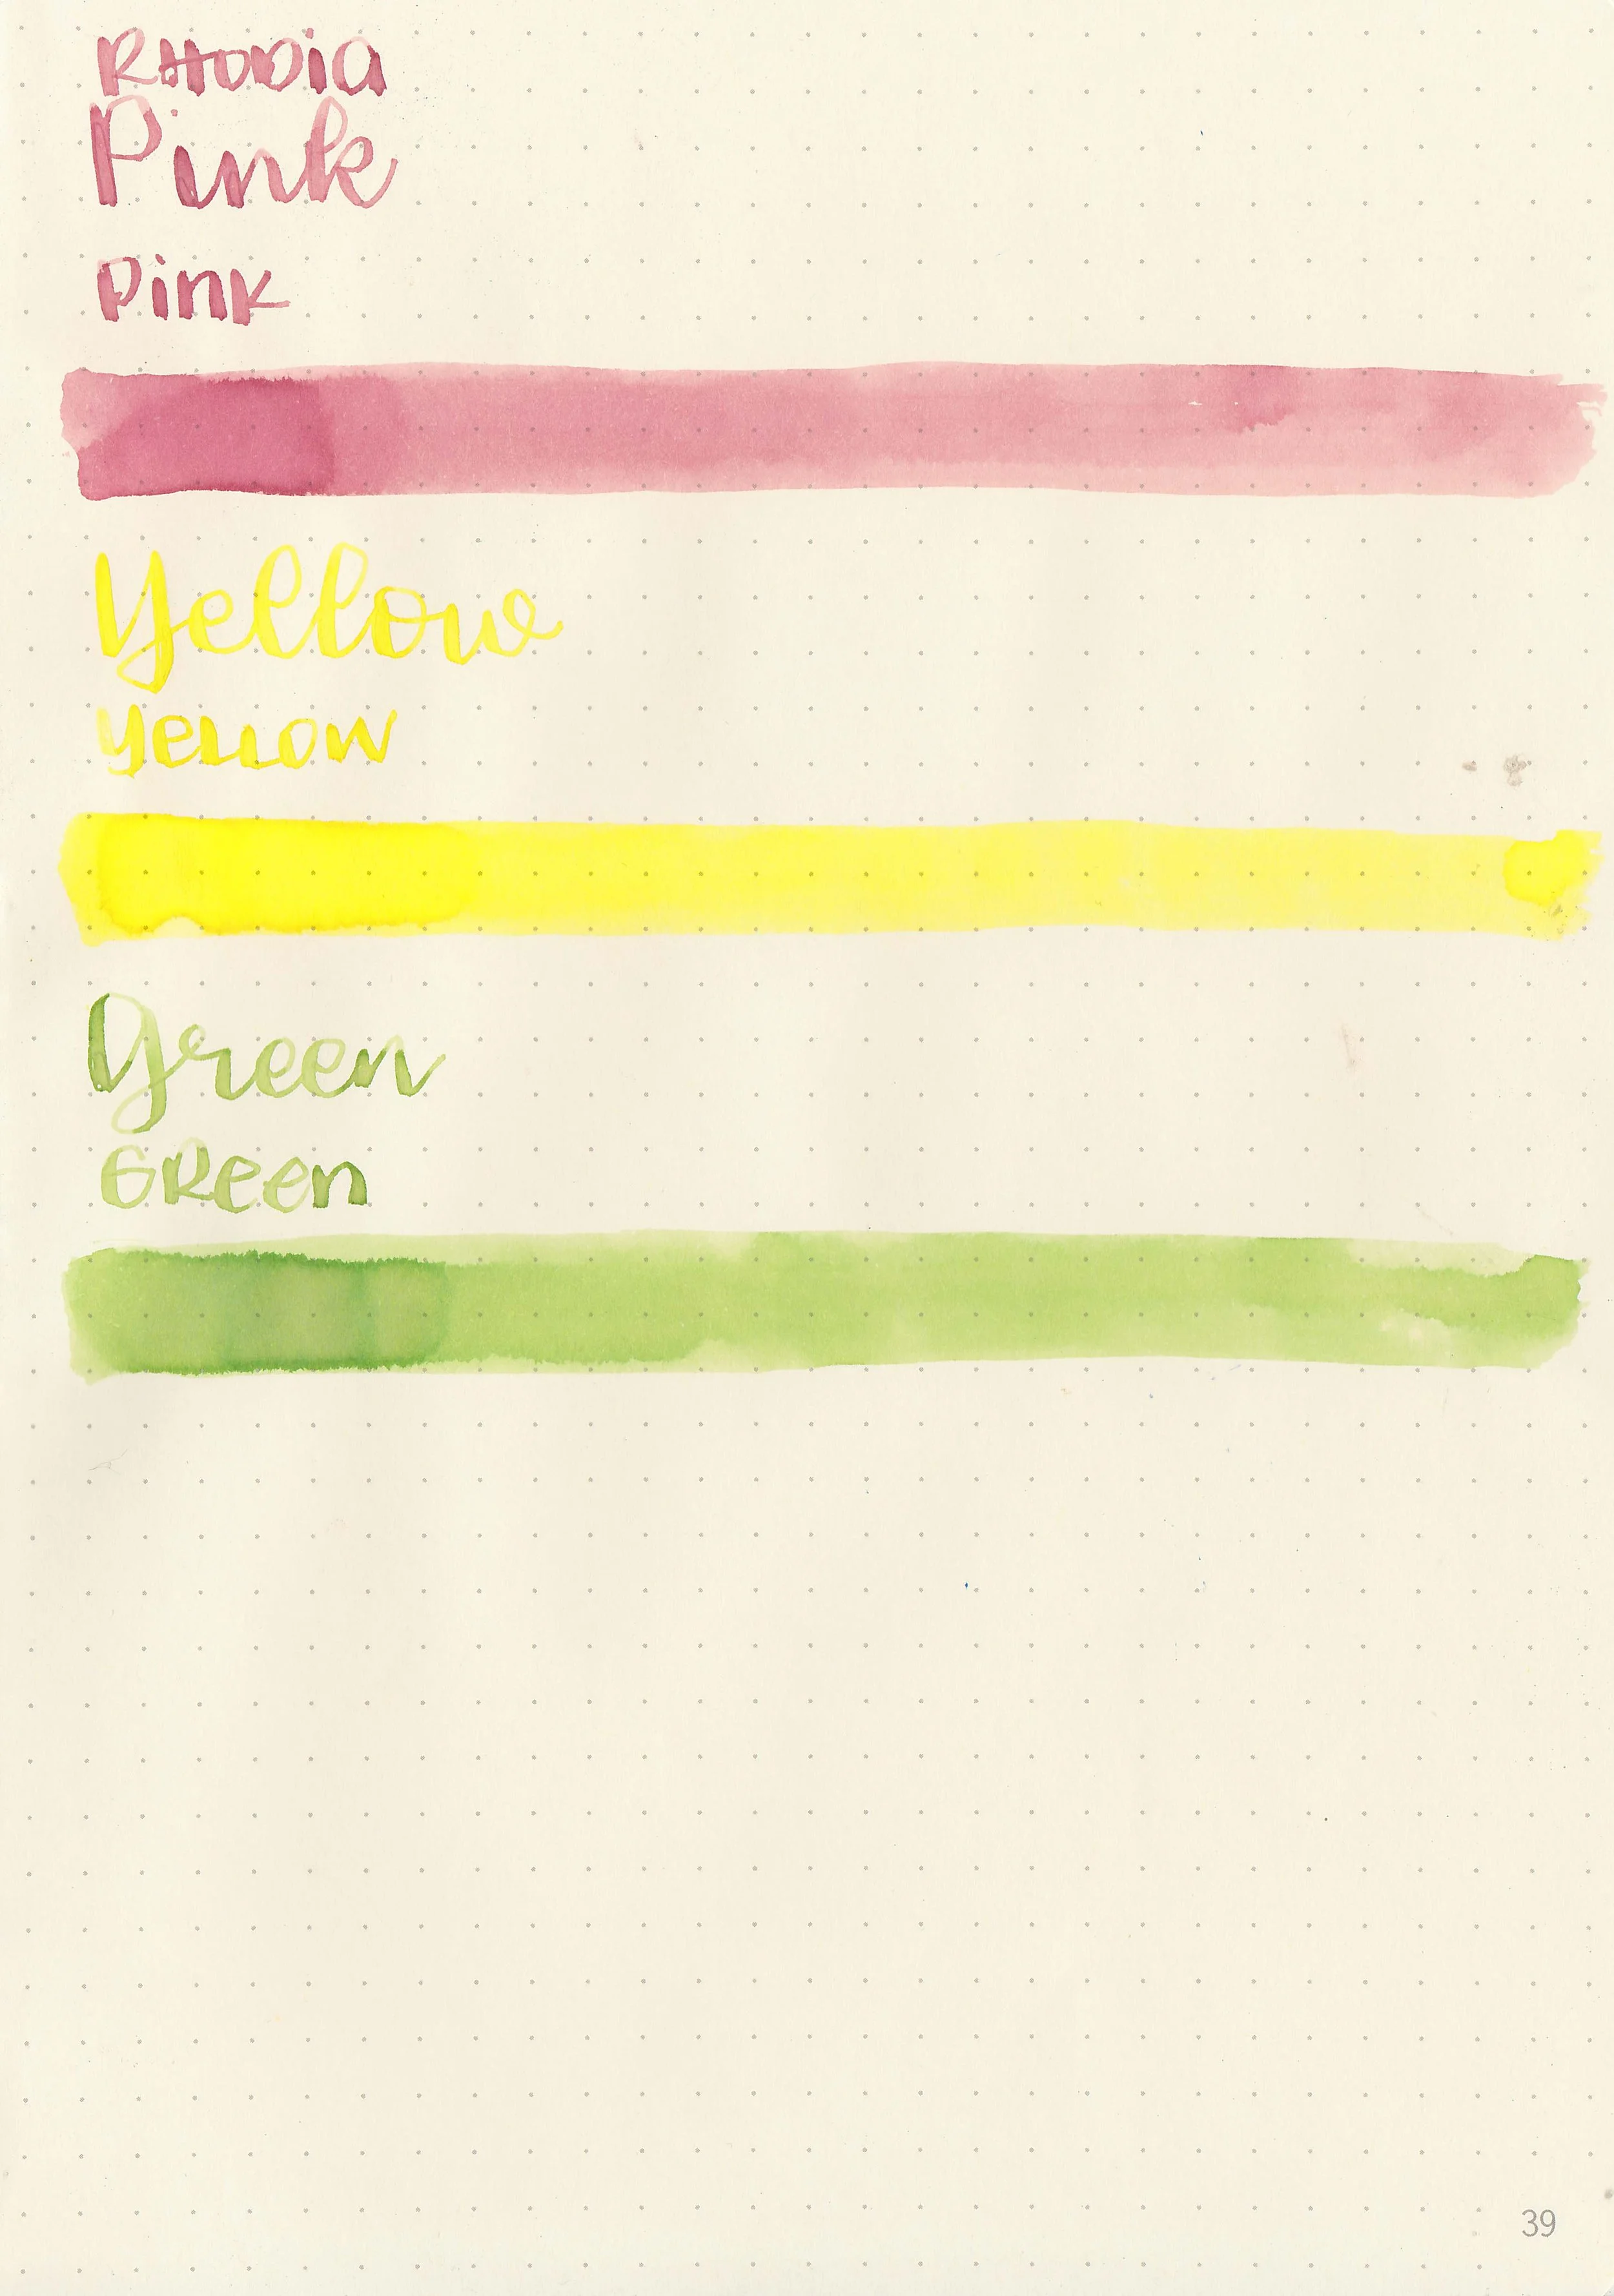 RHODIA
Pink
Pink
Yellow
YELLOW
Green
GReen
39